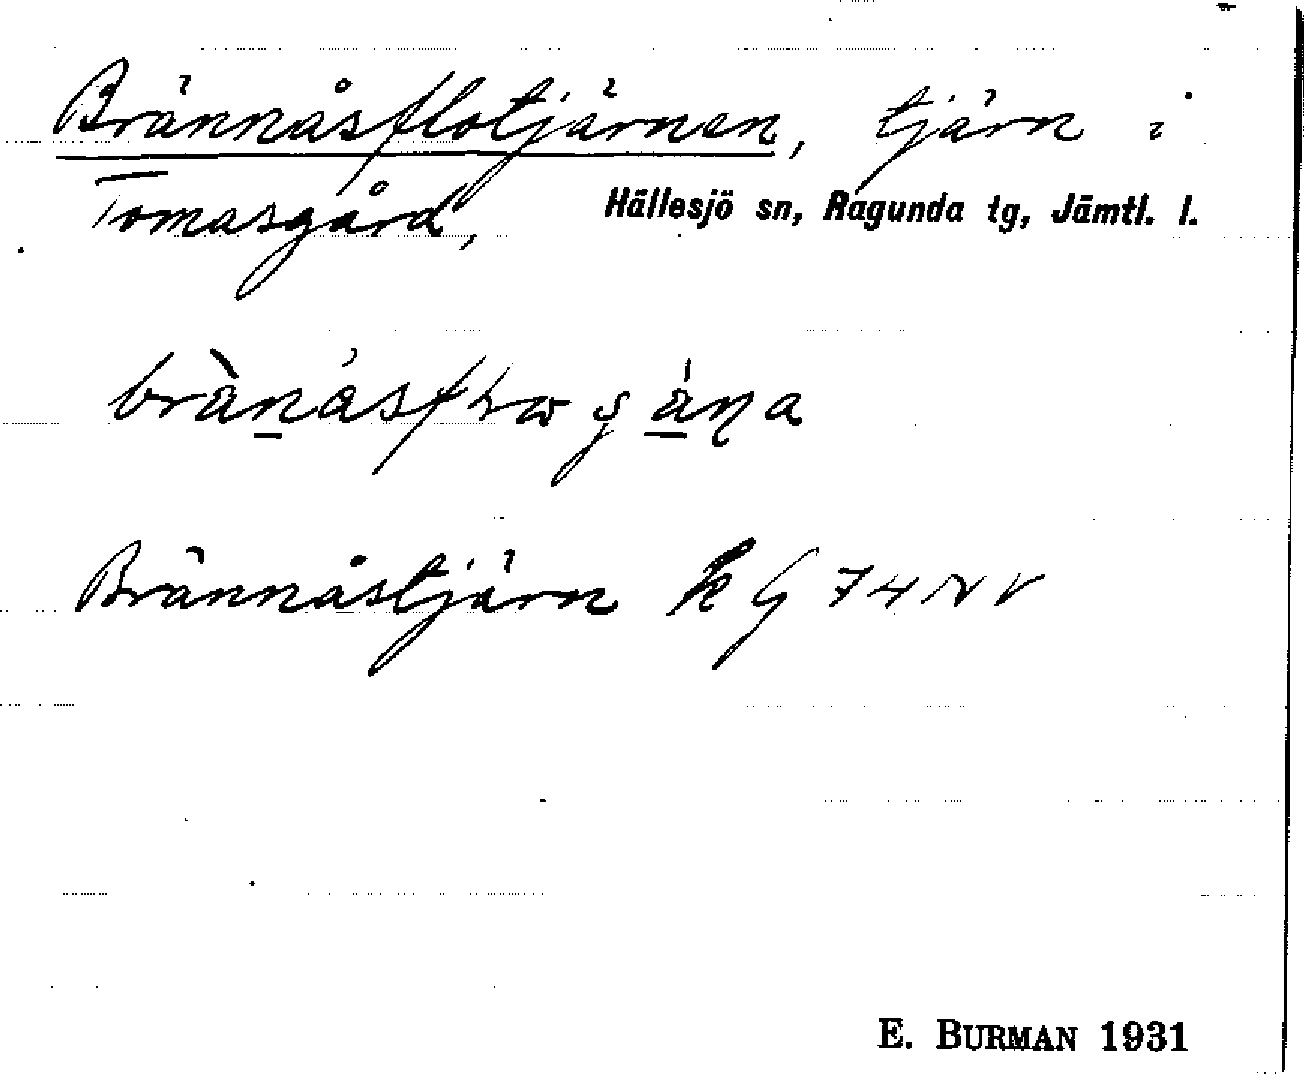 Brännåsflotjärnen, tjärn i
Tomasgård, Hällesjö sn, Ragunda tg, Jämtl. l.
Brännåstjärn k G 74 NV
E. BURMAN 1931